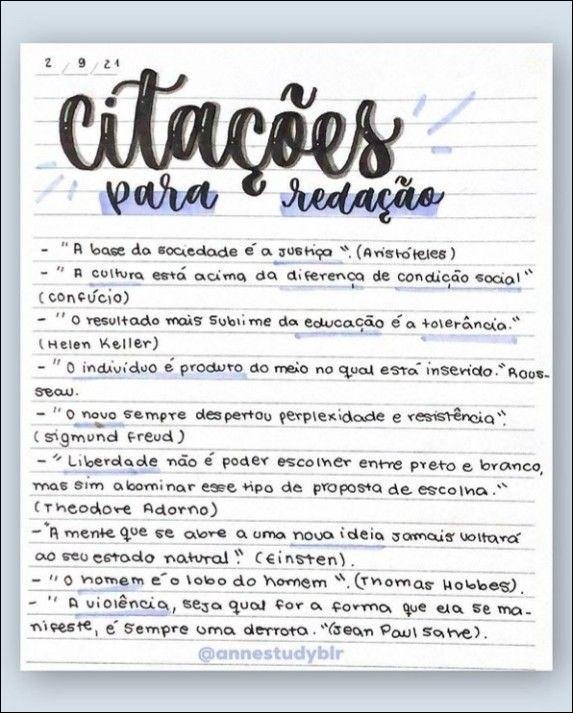 2 / 9 / 21
citações
para redação
- "A base da sociedade é a justiça". (Aristóteles)
- "A cultura está acima da diferença de condição social"
(confúcio)
- "O resultado mais sublime da educação é a tolerância."
(Helen Keller)
- "O indivíduo é produto do meio no qual está inserido." Rous-
seau.
- "O novo sempre despertou perplexidade e resistência".
(Sigmund Freud)
- "Liberdade não é poder escolher entre preto e branco,
mas sim abominar esse tipo de proposta de escolha."
(Theodore Adorno)
- "A mente que se abre a uma nova ideia jamais voltará
ao seu estado natural". (Einsten).
- "O homem é o lobo do homem". (Thomas Hobbes).
- "A violência, seja qual for a forma que ela se ma-
nifeste, é sempre uma derrota. "(Jean Paul Satre).
@annestudyblr